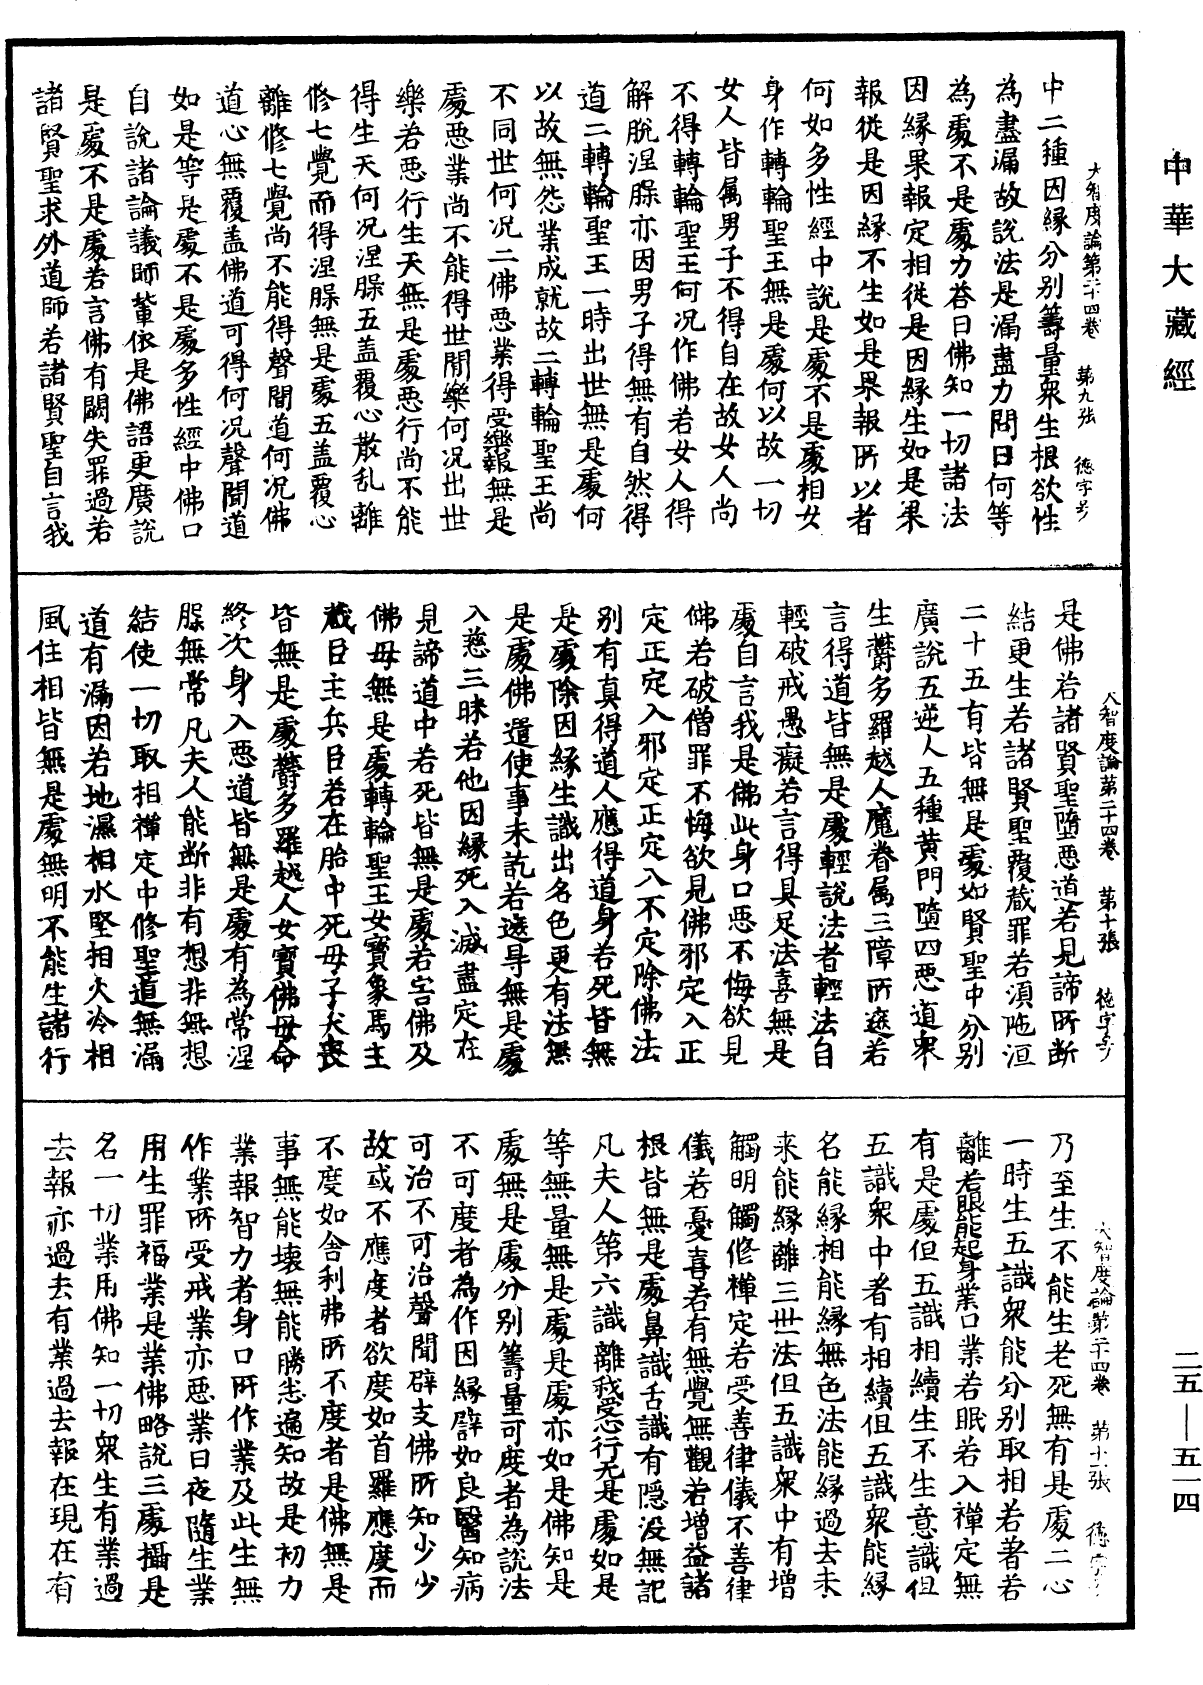 中華大藏經
大智度論第二十四卷　第九張　德字号
中二種因緣分別籌量衆生根欲性
為盡漏故說法是漏盡力問曰何等
為處不是處力荅曰佛知一切諸法
因緣果報定相從是因緣生如是果
報從是因緣不生如是果報所以者
何如多性經中說是處不是處相女
身作轉輪聖王無是處何以故一切
女人皆属男子不得自在故女人尚
不得轉輪聖王何況作佛若女人得
解脫涅槃亦因男子得無有自然得
道二轉輪聖王一時出世無是處何
以故無怨業成就故二轉輪聖王尚
不同世何況二佛惡業得受樂報無是
處惡業尚不能得世間樂何況出世
樂若惡行生天無是處惡行尚不能
得生天何況涅槃五盖覆心散乱離
修七覺而得涅槃無是處五盖覆心
離修七覺尚不能得聲聞道何況佛
道心無覆盖佛道可得何況聲聞道
如是等是處不是處多性經中佛口
自說諸論議師輩依是佛語更廣說
是處不是處若言佛有闕失罪過若
諸賢聖求外道師若諸賢聖自言我
大智度論第二十四卷　第十張　德字号
是佛若諸賢聖墮惡道若見諦所斷
結更生若諸賢聖覆藏罪若須陁洹
二十五有皆無是處如賢聖中分別
廣說五逆人五種黃門墮四惡道衆
生欝多羅越人魔眷属三障所遮若
言得道皆無是處輕說法者輕法自
輕破戒愚癡若言得具足法喜無是
處自言我是佛此身口惡不悔欲見
佛若破僧罪不悔欲見佛邪定入正
定正定入邪定正定入不定除佛法
別有真得道人應得道身若死皆無
是處除因緣生識出名色更有法無
是處佛遣使事未訖若遮㝵無是處
入慈三昧若他因緣死入滅盡定在
見諦道中若死皆無是處若害佛及
佛母無是處轉輪聖王女寶象馬主
藏臣主兵臣若在胎中死母子犬喪
皆無是處欝多羅越人女寶佛母命
終次身入惡道皆無是處有為常涅
槃無常凡夫人能斷非有想非無想
結使一切取相禪定中修聖道無漏
道有漏因若地濕相水堅相火冷相
風住相皆無是處無明不能生諸行
大智度論第二十四卷　第十一張　德字号
乃至生不能生老死無有是處二心
一時生五識衆能分別取相若著若
離若眼能起身業口業若眠若入禪定無
有是處但五識相續生不生意識但
五識衆中者有相續但五識衆能緣
名能緣相能緣無色法能緣過去未
来能緣離三世法但五識衆中有增
觸明觸修禪定若受善律儀不善律
儀若憂喜若有無覺無觀若增益諸
根皆無是處鼻識舌識有隠没無記
凡夫人第六識離我受心行无是處如是
等無量無是處是處亦如是佛知是
處無是處分別籌量可度者為說法
不可度者為作因緣譬如良醫知病
可治不可治聲聞辟支佛所知少少
故或不應度者欲度如首羅應度而
不度如舎利弗所不度者是佛無是
事無能壊無能勝悉遍知故是初力
業報智力者身口所作業及此生無
作業所受戒業亦惡業日夜隨生業
用生罪福業是業佛略說三處攝是
名一切業用佛知一切衆生有業過
去報亦過去有業過去報在現在有
二五—五一四